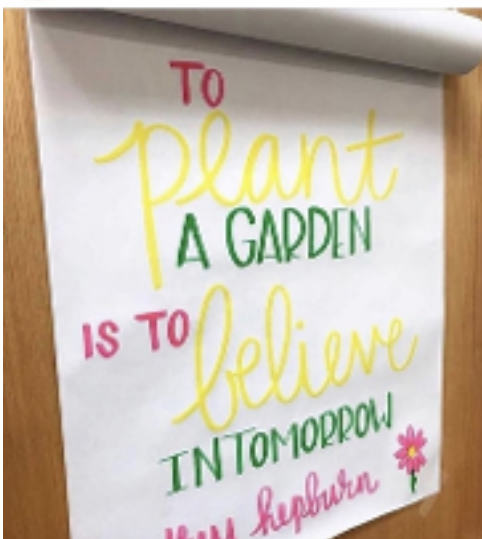 TO
plant
A GARDEN
IS TO believe
IN TOMORROW
hepburn